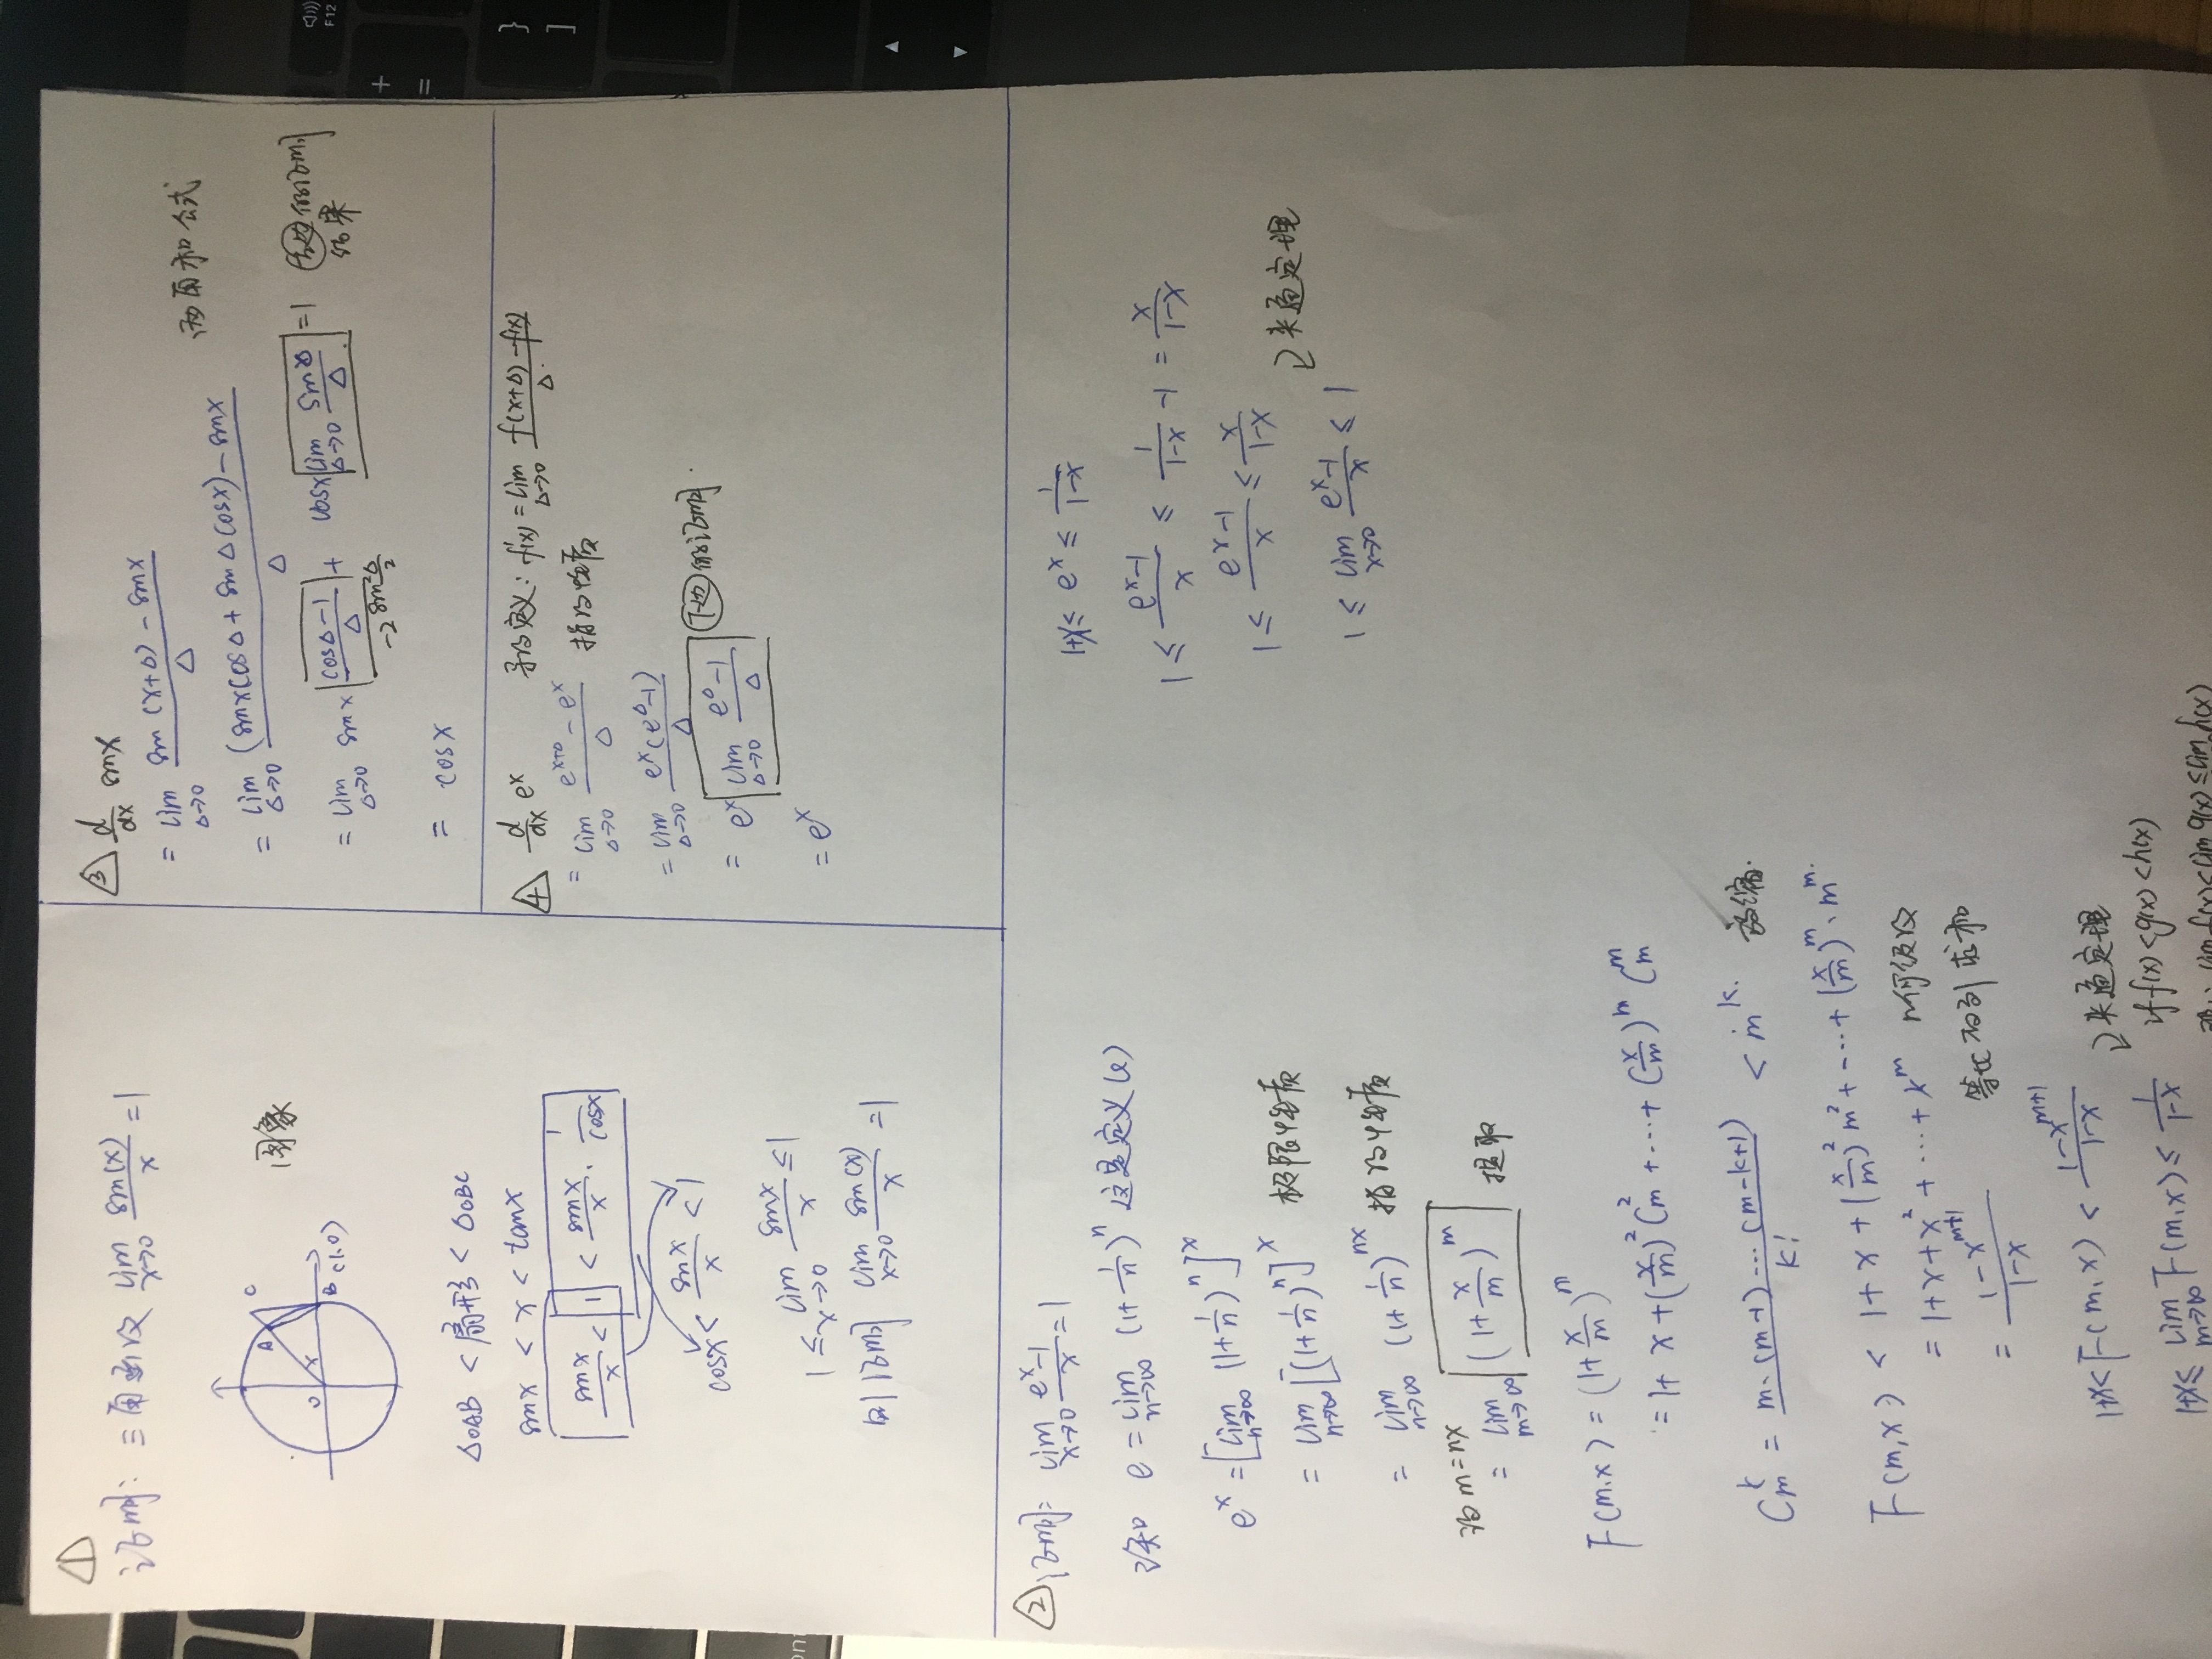 ①
证明: 三角函数 lim x→0 sin(x)/x = 1
图象
A
C
O
x
B (1,0)
△OAB < 扇形 < △OBC
sinx < x < tanx
sinx/x < 1 < sinx/x · 1/cosx
cosx < sinx/x < 1
1 ≤ lim x→0 sinx/x ≤ 1
则证明 lim x→0 sin(x)/x = 1
③ d/dx sinx
= lim Δ→0 (sin(x+Δ) - sinx)/Δ
两角和公式
= lim Δ→0 ((sinxcosΔ + sinΔcosx) - sinx)/Δ
= lim Δ→0 sinx (cosΔ-1)/Δ + cosx lim Δ→0 sinΔ/Δ = 1 左边的证明结果
-2sin²Δ/2
= cosx
④ d/dx e^x 导数定义: f'(x) = lim Δ→0 (f(x+Δ) - f(x))/Δ
= lim Δ→0 (e^(x+Δ) - e^x)/Δ 指数性质
= lim Δ→0 e^x(e^Δ-1)/Δ
= e^x lim Δ→0 (e^Δ-1)/Δ 下边的证明.
= e^x
② 证明: lim x→0 (e^x-1)/x = 1
e = lim n→∞ (1+1/n)^n 这是定义(e)
e^x = [lim n→∞ (1+1/n)^n]^x
= lim n→∞ [(1+1/n)^n]^x 极限性质
= lim n→∞ (1+1/n)^nx 指数性质
设 m=nx
= lim m→∞ (1+x/m)^m 提取
F(m,x) = (1+x/m)^m
= 1+x+(x/m)^2 C_m^2 + ··· + (x/m)^m C_m^m
C_m^k = m·(m-1)···(m-k+1)/k! < m^k. 放缩.
F(m,x) < 1+x+(x/m)^2 m^2 + ··· + (x/m)^m · m^m.
= 1+x+x^2+···+x^m 几何级数
= (1-x^(m+1))/(1-x) 等比数列求和
1+x < F(m,x) < (1-x^(m+1))/(1-x)
夹逼定理
1+x ≤ lim m→∞ F(m,x) ≤ 1/(1-x)
if f(x)<g(x)<h(x)
lim f(x) ≤ lim g(x) ≤ lim h(x)
1+x ≤ e^x ≤ 1/(1-x)
1 ≤ (e^x-1)/x ≤ 1/(1-x) -1 = x/(1-x)
1 ≤ (e^x-1)/x ≤ x/(1-x)
夹逼定理
1 ≤ lim x→0 (e^x-1)/x ≤ 1
F12
+
=
}
]